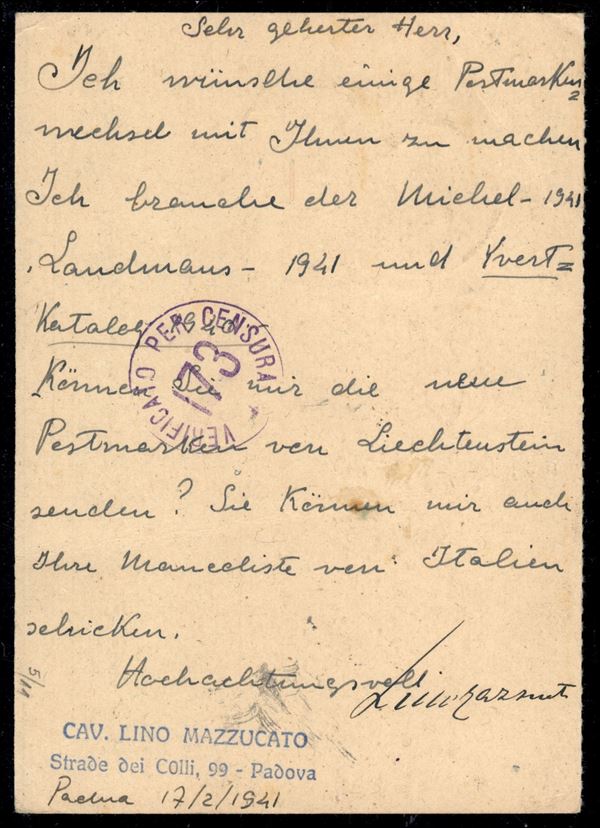 Sehr geherter Herr,
Ich wünsche einige Postmarken=
wechsel mit Ihnen zu machen
Ich brauche der Michel - 1941
, Landmans - 1941 und Yvert=
Katalog 1940.
Können Sie mir die neue
Postmarken von Liechtenstein
senden? Sie Können mir auch
Ihre Mancoliste von Italien
schicken.
Hochachtungsvoll
VERIFICATO PER CENSURA
173
5/11
CAV. LINO MAZZUCATO
Strade dei Colli, 99 - Padova
Padua 17/2/1941